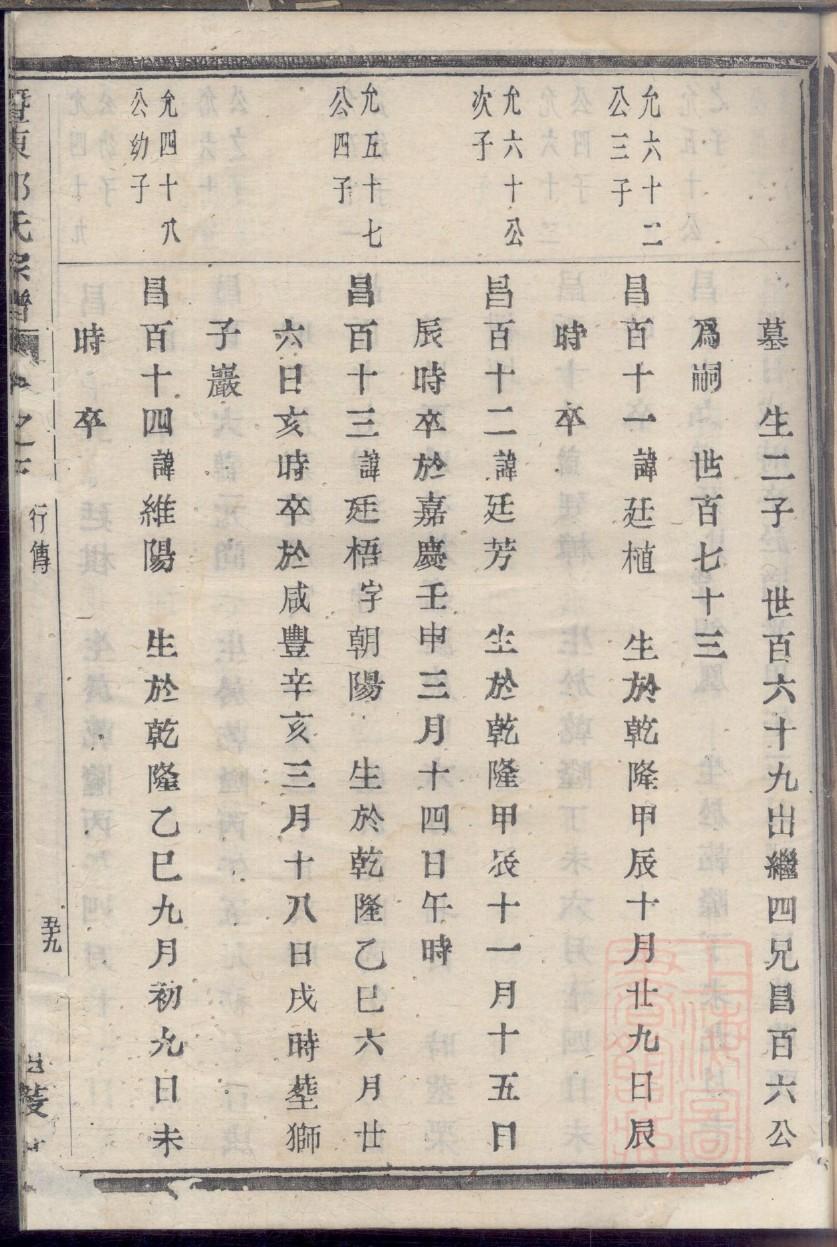 墓　生二子　世百六十九出繼四兄昌百六公
爲嗣　世百七十三
允六十二
公三子
昌百十一諱廷植　生於乾隆甲辰十月廿九日辰
時　卒
允六十公
次子
昌百十二諱廷芳　生於乾隆甲辰十一月十五日
辰時卒於嘉慶壬申三月十四日午時
允五十七
公四子
昌百十三諱廷梧字朝陽　生於乾隆乙巳六月廿
六日亥時卒於咸豐辛亥三月十八日戌時塟獅
子巖
允四十八
公幼子
昌百十四諱維陽　生於乾隆乙巳九月初九日未
時　卒
氏宗譜
行傳